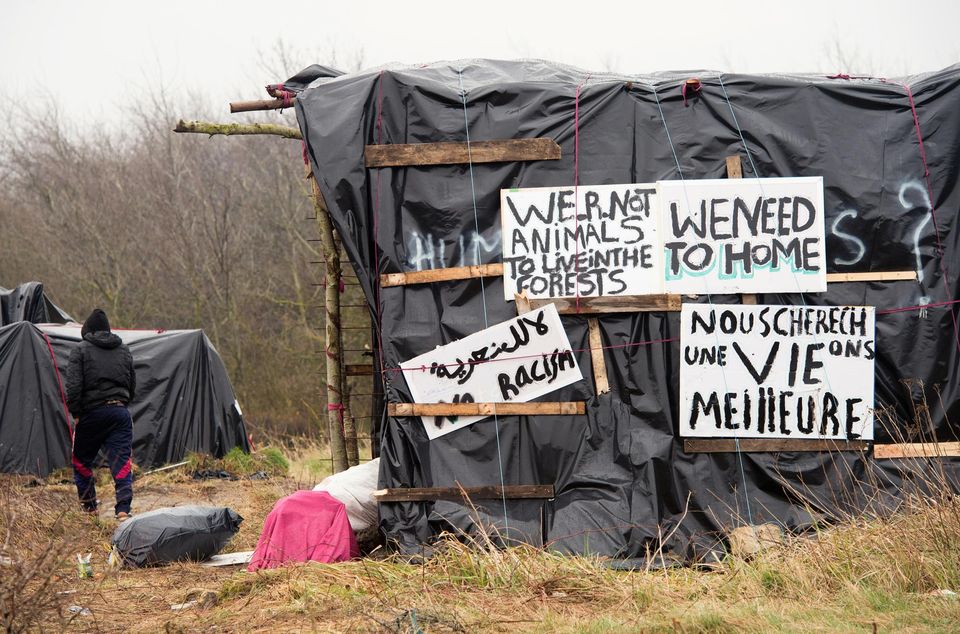 WE.R.NOT
ANIMALS
TO LIVE IN THE
FORESTS
WE NEED
TO HOME
HUM
S ?
لا للعنصرية
NO RACISM
NOUSCHERECH
UNE VIE ONS
MEIllEURE